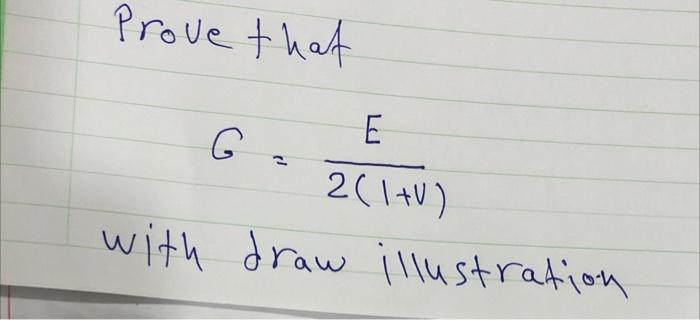 Prove that
G = E / 2(1+V)
with draw illustration